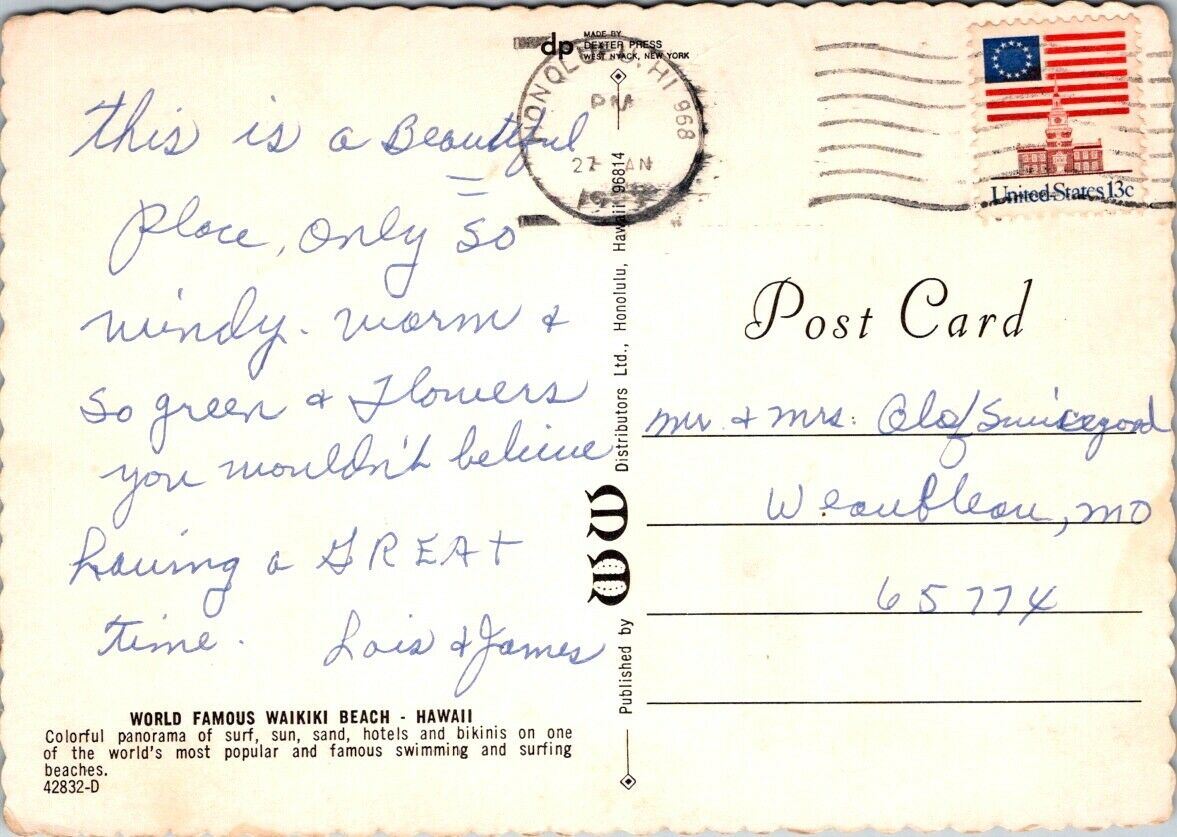 this is a Beautiful
Place, only so
windy. warm &
so green & Flowers
you wouldn't believe
having a GREAT
time. Lois & James
WORLD FAMOUS WAIKIKI BEACH - HAWAII
Colorful panorama of surf, sun, sand, hotels and bikinis on one
of the world's most popular and famous swimming and surfing
beaches.
42832-D
dp
MADE BY
DEXTER PRESS
WEST NYACK, NEW YORK
HONOLULU, HI 968
PM
27 JAN
Published by WW Distributors Ltd., Honolulu, Hawaii 96814
United States 13c
Post Card
Mr. & Mrs. Olof Swicegood
Weaubleau, MO
65774